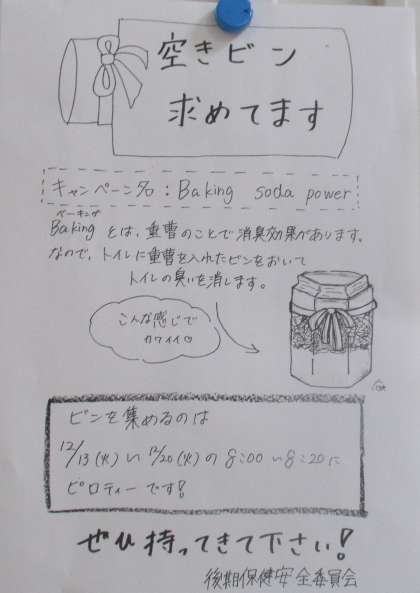 空きビン
求めてます
キャンペーン名：Baking soda power
ベーキング
Baking とは、重曹のことで消臭効果があります。
なので、トイレに重曹を入れたビンをおいて
トイレの臭いを消します。
こんな感じで
カワイイ♡
ビンを集めるのは
12/13(火)〜12/20(火)の8:00〜8:20に
ピロティーです!
ぜひ持ってきて下さい!
後期保健安全委員会